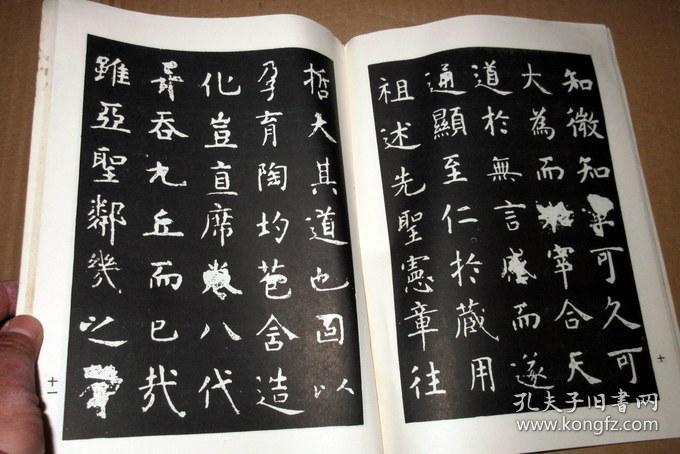 知微知可久可
大為而宰合天
道於無言感而遂
通顯至仁於藏用
祖述先聖憲章往
十
哲夫其道也固以
孕育陶均苞含造
化豈直席卷八代
吞九丘而已哉
雖亞聖鄰幾之
十一
孔夫子旧书网
www.kongfz.com